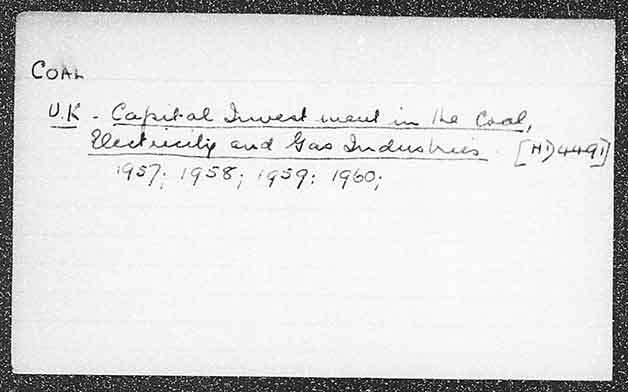 COAL
U.K - Capital Investment in the Coal,
Electricity and Gas Industries. [HD4491]
1957; 1958; 1959; 1960;